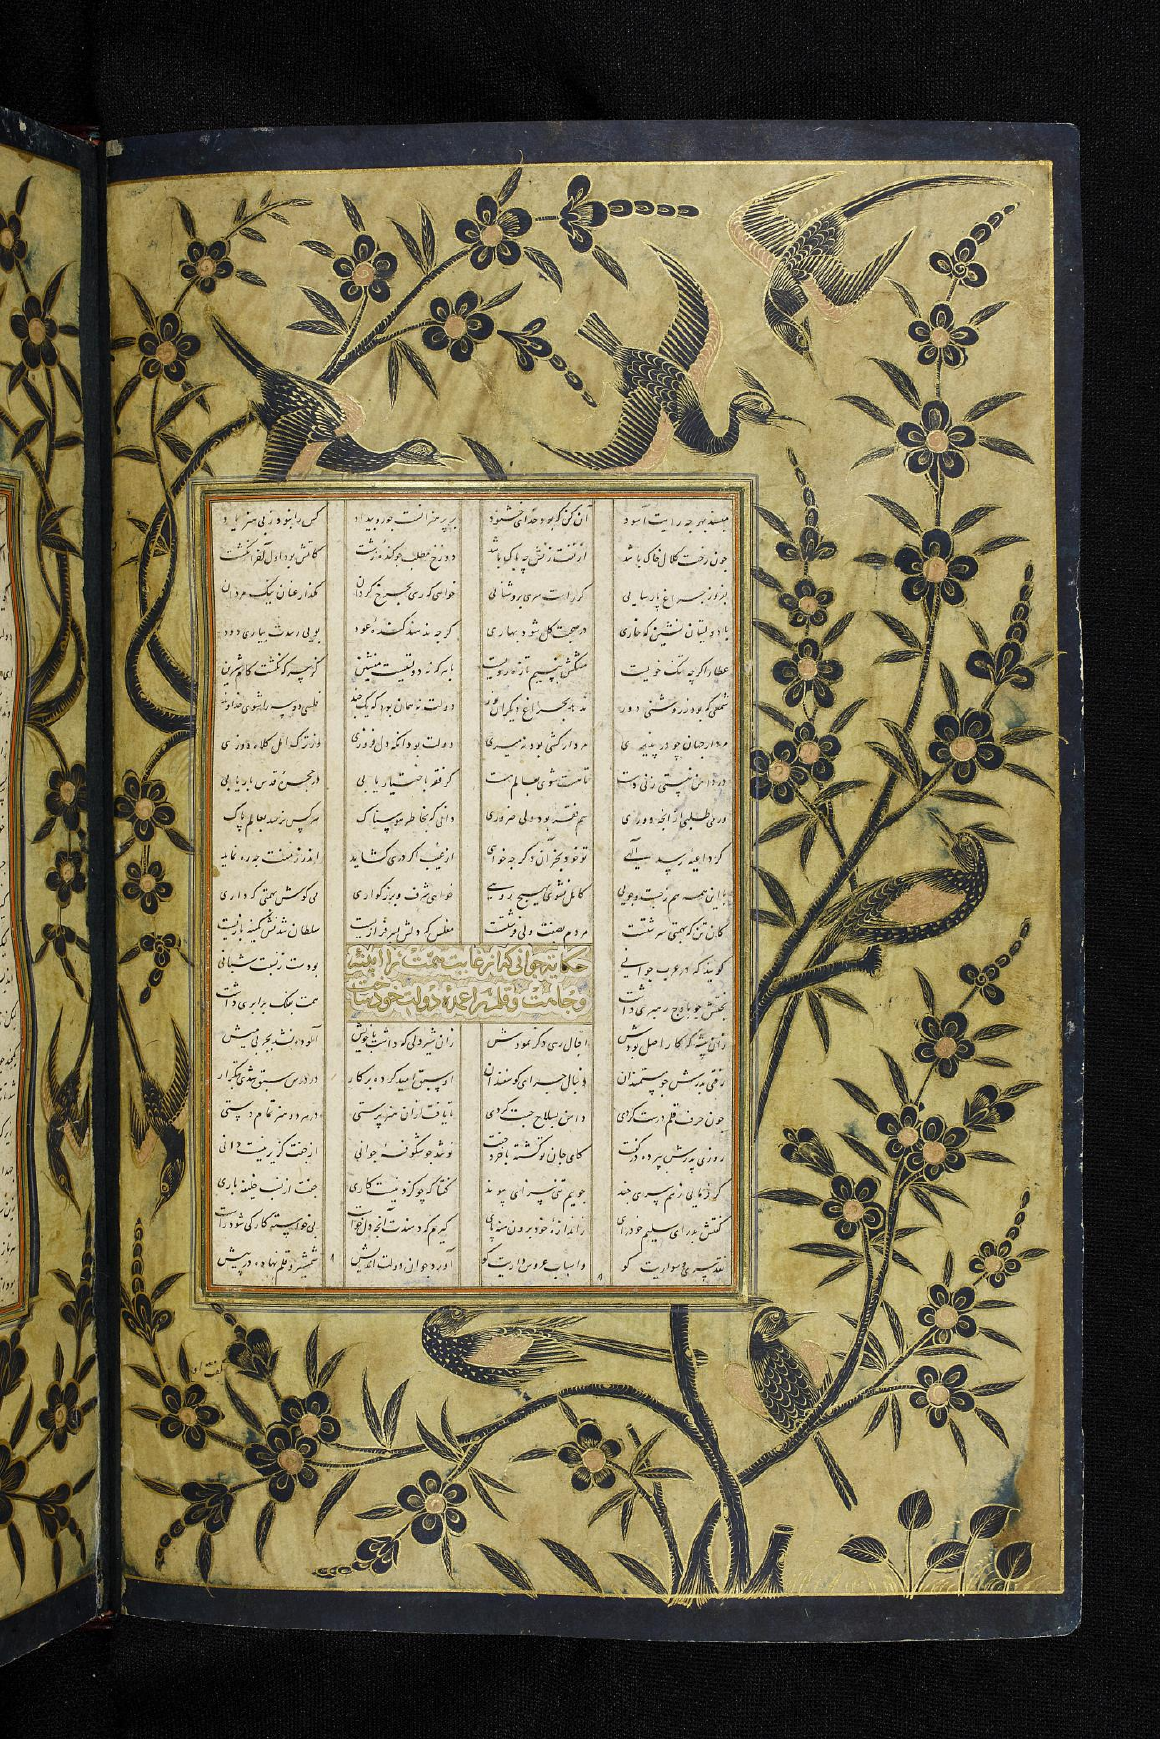 مپسند هر چه رایت آسود آن کن که بود خدای خشنود بر پر هنر است جور و بیداد کس را نبود ز بی هنر یاد
چون رخت کلال خاک باشد از تفت زنش چه باک باشد دوزخ مطلب چو کنده زشت کاتش بود اول آخر انگشت
بر افروز چراغ پارسایی کز راست روی بروشنائی خواهی که رسی بچرخ گردان مگذار عنان نیک مردان
با دولتیان نشین که خاری در صحبت گل شود بهاری گرچه ندهند کنده عود بویی رسدت بیاری دود
عطار اگر چه تنگ خوییست مشکش به نسیم تازه روییست با آنکه نه دولتیست منشین
شمعی که بود ز روشنی دور ندهد بچراغ دیگران نور دولت نه همان بود که یک چند فلسی دو سه را شوی خداوند
مردار جهان چو در پذیری مردار کشی بود نه میری دولت بود آنکه دل فروزی وز ترک امل کلاه دوزی
در دامن نیستی زنی دست تا مست شوی بعالم هست گر فقر باختیار یابی در مجلس قدس بار یابی
ور می طلبی از آنچه دوری هم فقر بود ولی ضروری دانی که بخاطر هوسناک هر کس نرسد بعالم پاک
گر داعیه رسد الهی تو خود بخود آن دگر چه خواهی از غیب اگر دری گشاید اندرز منت چه ره نماید
با این همه هم ز جست و جویی کاهل نشوی بهیچ رویی خواهی شرف و بزرگواری می کوش بهمتی که داری
کان تن که بهمتی سرشتست مردم صفت ولی فرشتست مفلس که دلش سرفرازیست سلطان شدنش کمینه بازیست
حکایت جوانی که از غایت همت
و قلم را عمده دولت خود ساخت
گویند که در عرب جوانی بودست ز نسبت شبانی
بخشش چو باوج رهبری داشت همت بفلک برابری داشت
زان پیشه که کار اصل بودش اقبال رهی دگر نمودش زان شیر دلی که داشت با خویش آلوده نشد بچربی میش
رفتی پدرش چو مستمندان دنبال چرای گوسفندان او پیش ادیب کرده پرکار در درس سبق شدی بتکرار
چون حرف قلم درست کردی دامن بسلاح چست کردی تا یافت ازان هنر پرستی در هر دو هنر تمام دستی
روزی پدرش بپرده در گفت کای جان تو گشته با خرد جفت نو شد چو شکوفه جوانی از جفت گزیر نیست دانی
گر فرمایی ز هم سری چند جویم پیوند گفتا که چو کاری جفت از نسب خلیفه باری
گفتش پدر ای سلیم خودرای ز اندازه خود برون منه پای گیرم که دهندت آنچه دل خواست بی خواسته کار کی شود راست
نقد سره و سواریت کو واسباب عروس داریت کو آورد جوان دولت اندیش شمشیر و قلم نهاد در پیش